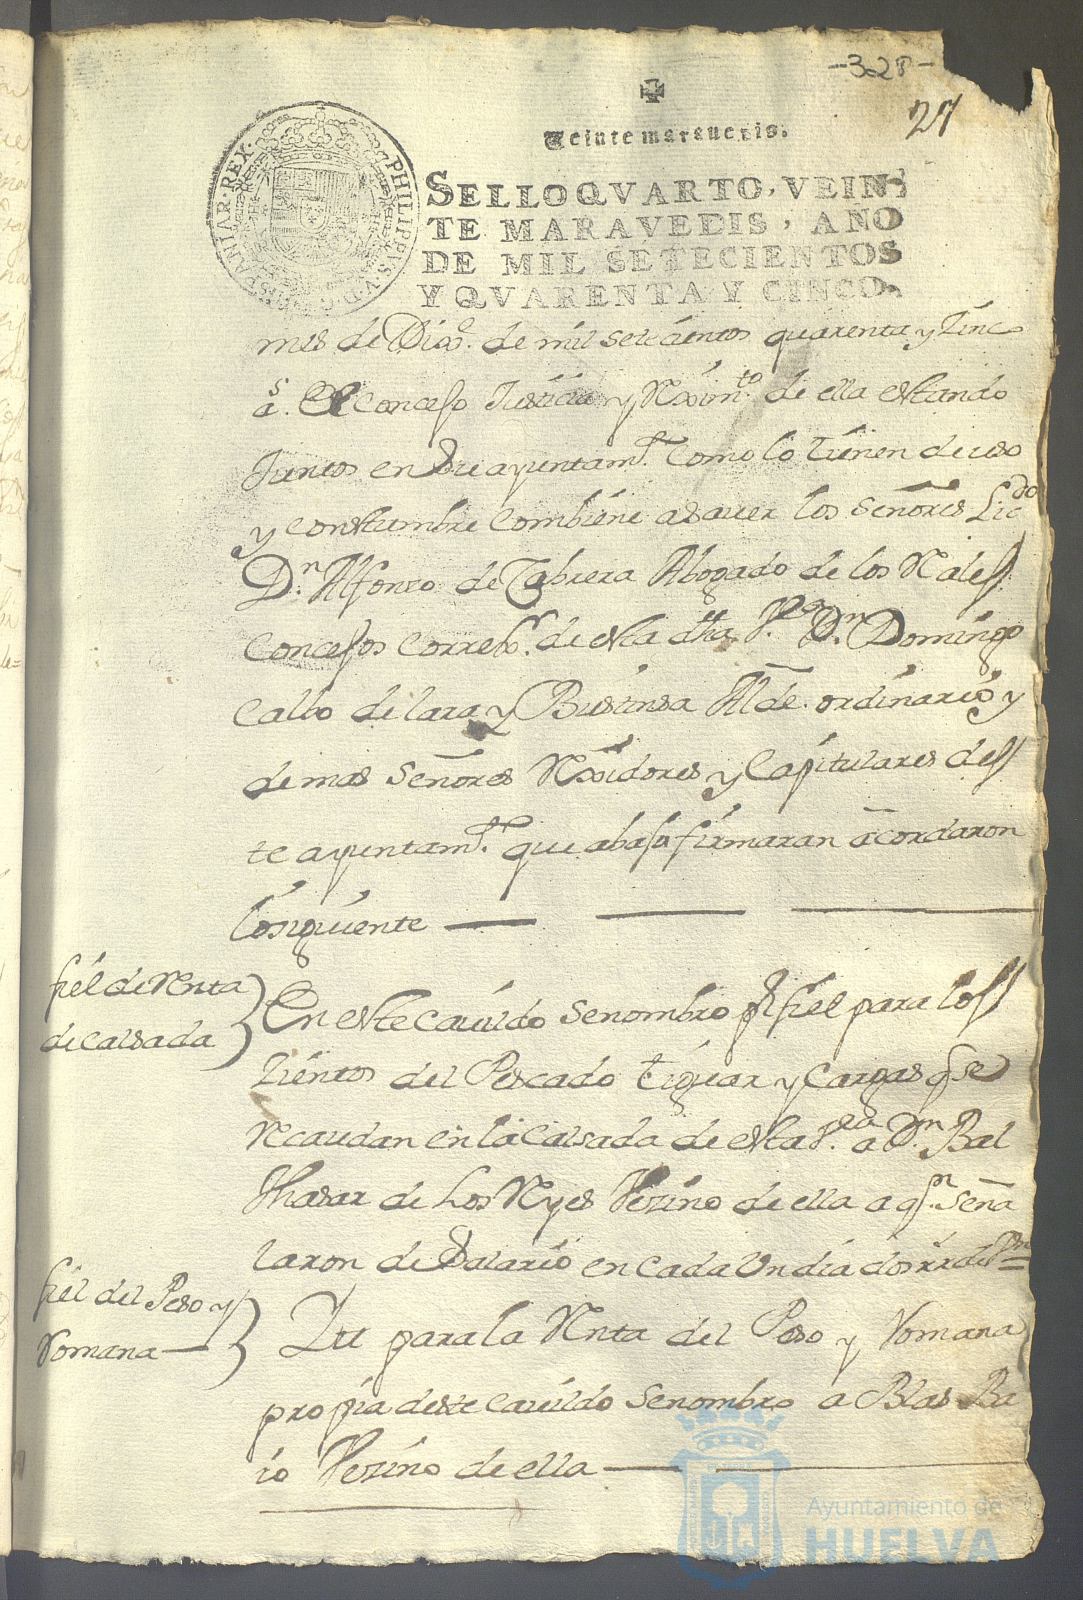 -328-
27
Veinte marauedis.
SELLO QVARTO, VEIN-
TE MARAVEDIS, AÑO
DE MIL SETECIENTOS
Y QVARENTA Y CINCO.
PHILIPPVS. V. D. G. HISPANIAR. REX.
mes de Dixe. de mil setecientos quarenta y sinc
s
a. El concejo Justicia y Rxim.to de ella estando
Juntos en Sre ayuntam.to Como lo tienen de uso
y constumbre combiene a sauer los Señores Lic.do
D.n Alfonso de Cabrera Abogado de los Rales
Concejos Corre.r de esta dha V.a D.n Domingo
Calbo de lara y Bustinsa Alde. ordinario y
demas Señores Rxidores y Capitulares des
te ayuntam.to que abajo firmaran acordaron
lo siguiente
fiel de Renta
de calsada
En este cauildo se nombro por fiel para los
sientos del Pescado tiguar y Cargas q se
Recaudan en la calsada de esta V.a a D.n Bal
thasar de Los Reyes Vezino de ella a q.n Seña
laron de Salario en cada Un dia dos rr.s de
fiel del Peso y
Romana
Itt para la Renta del Peso y Romana
propia deste cauildo se nombro a Blas Ba
io Vezino de ella
Ayuntamiento de
HUELVA